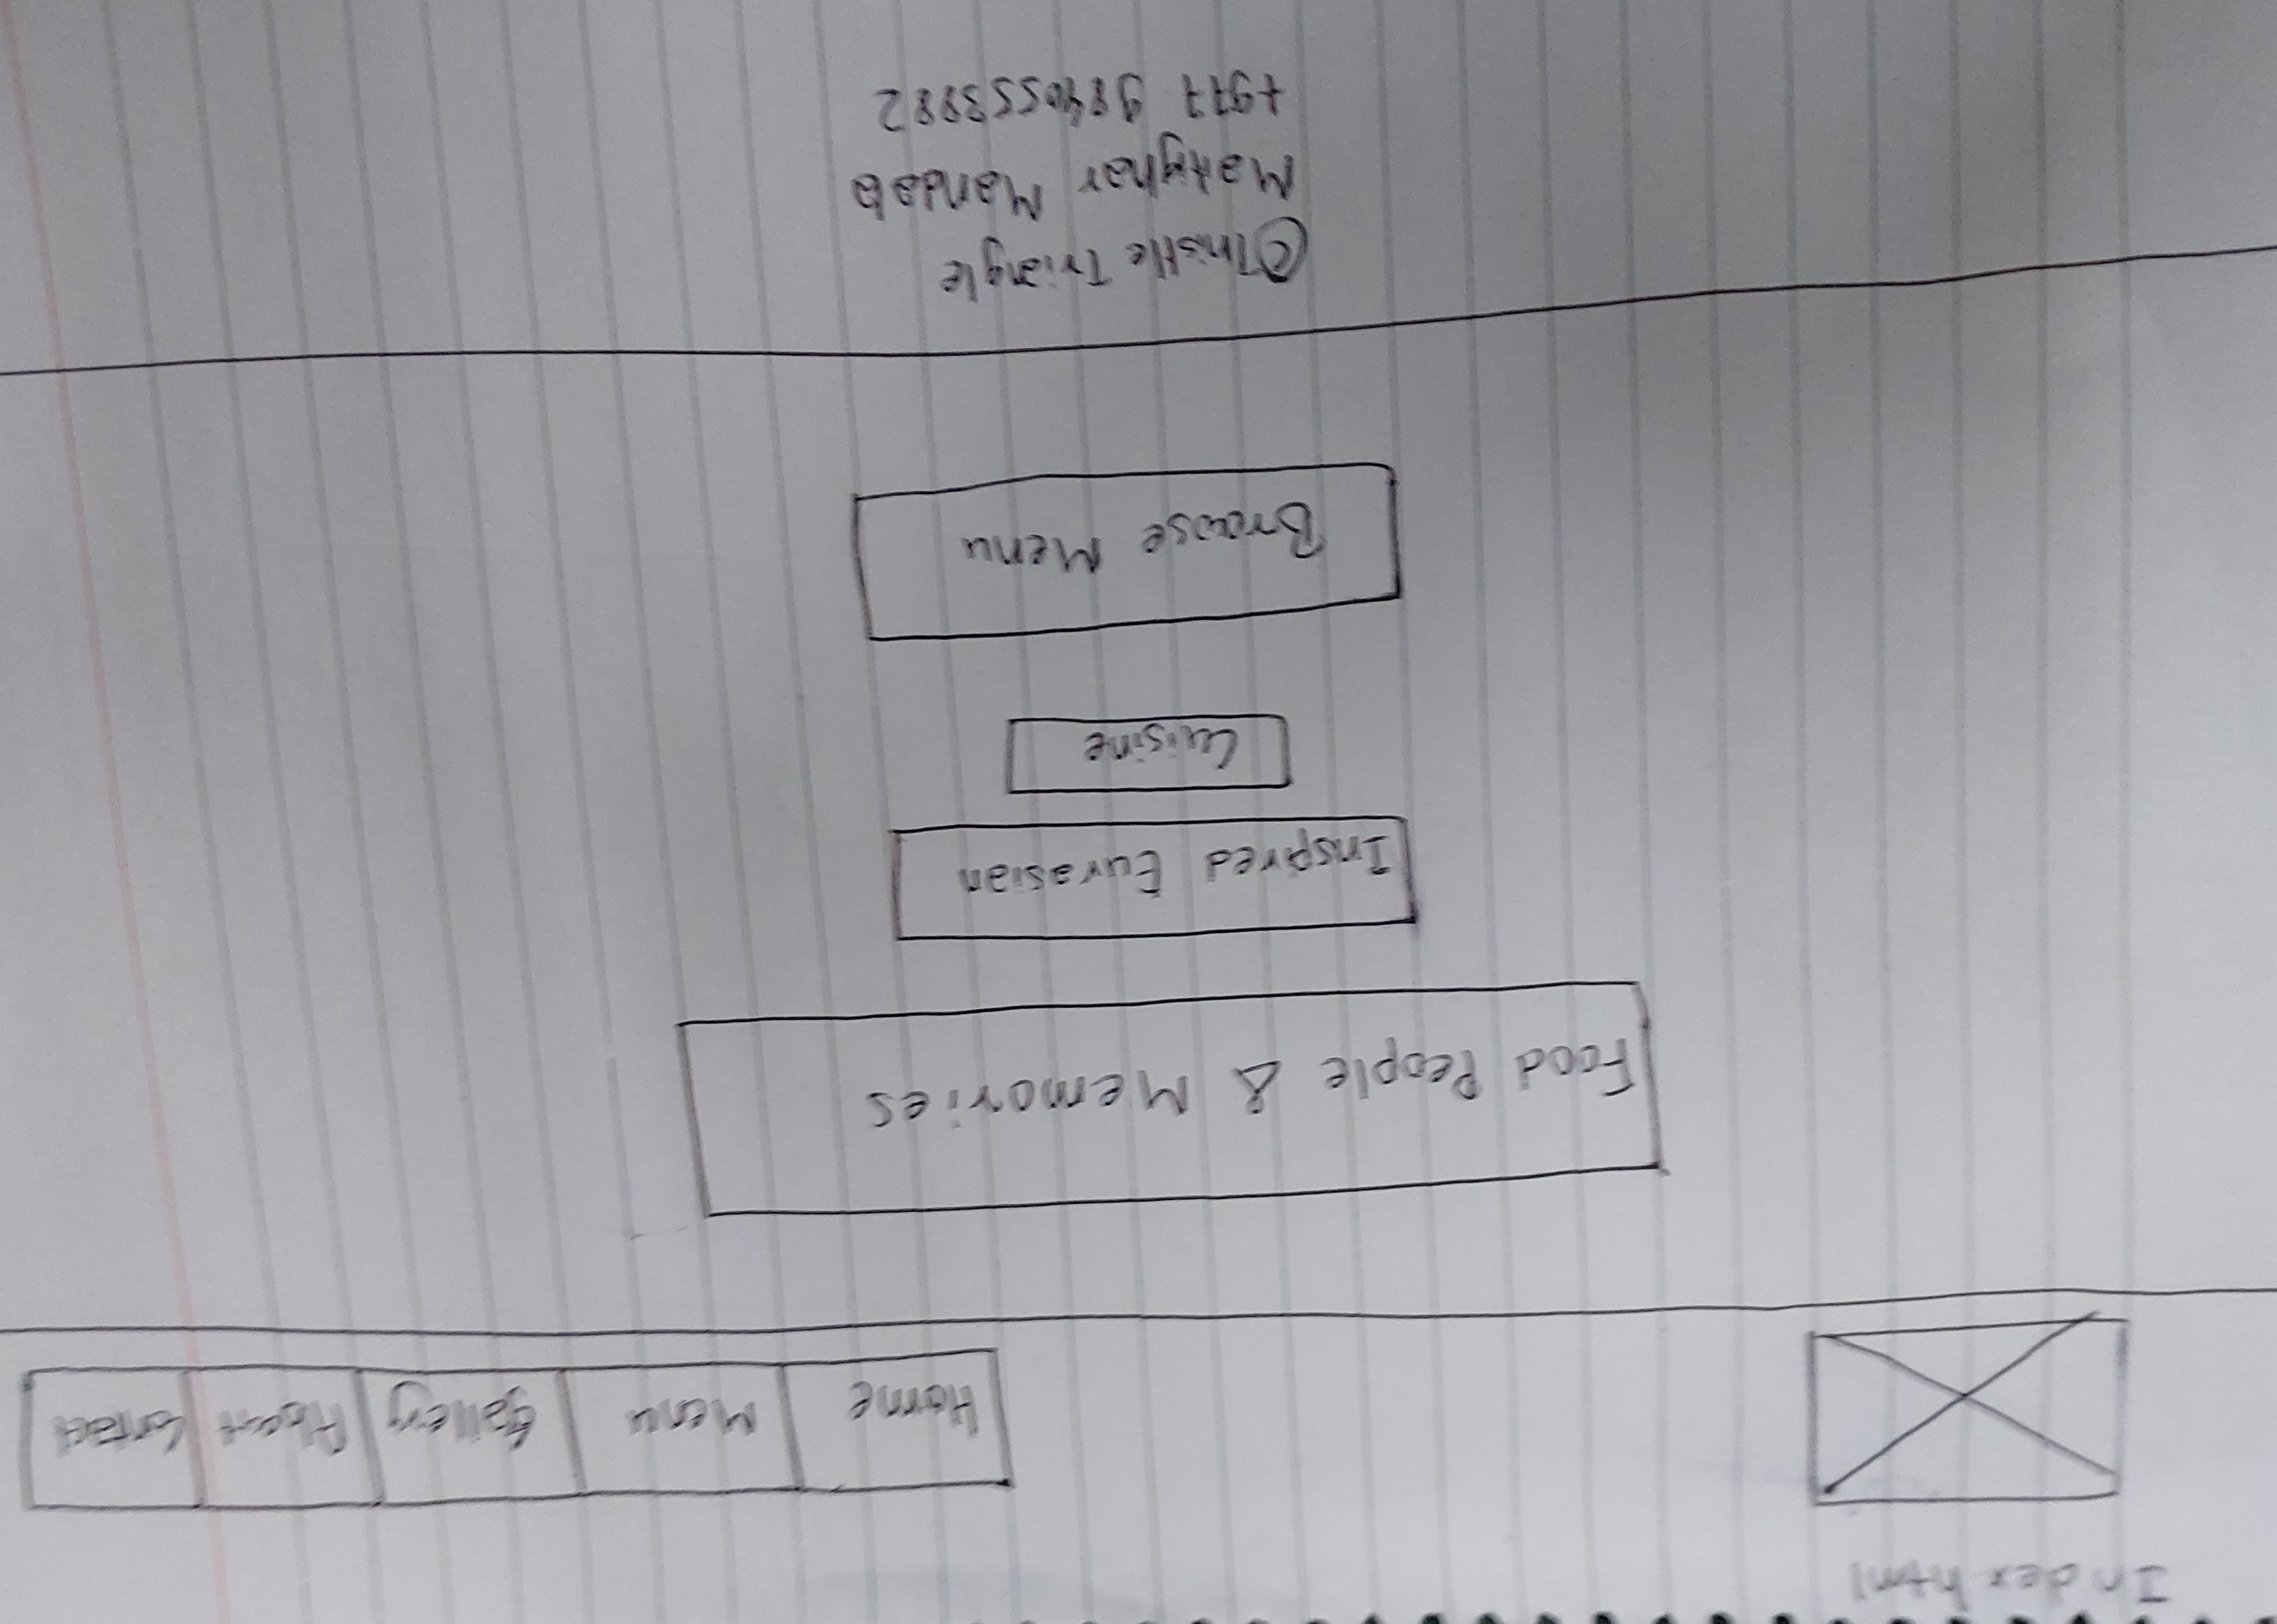 Index html
Home Menu Gallery About Contact
Food People & Memories
Inspired Eurasian
Cuisine
Browse Menu
©Thistle Triangle
Matyghar Mandala
+977 9840553882